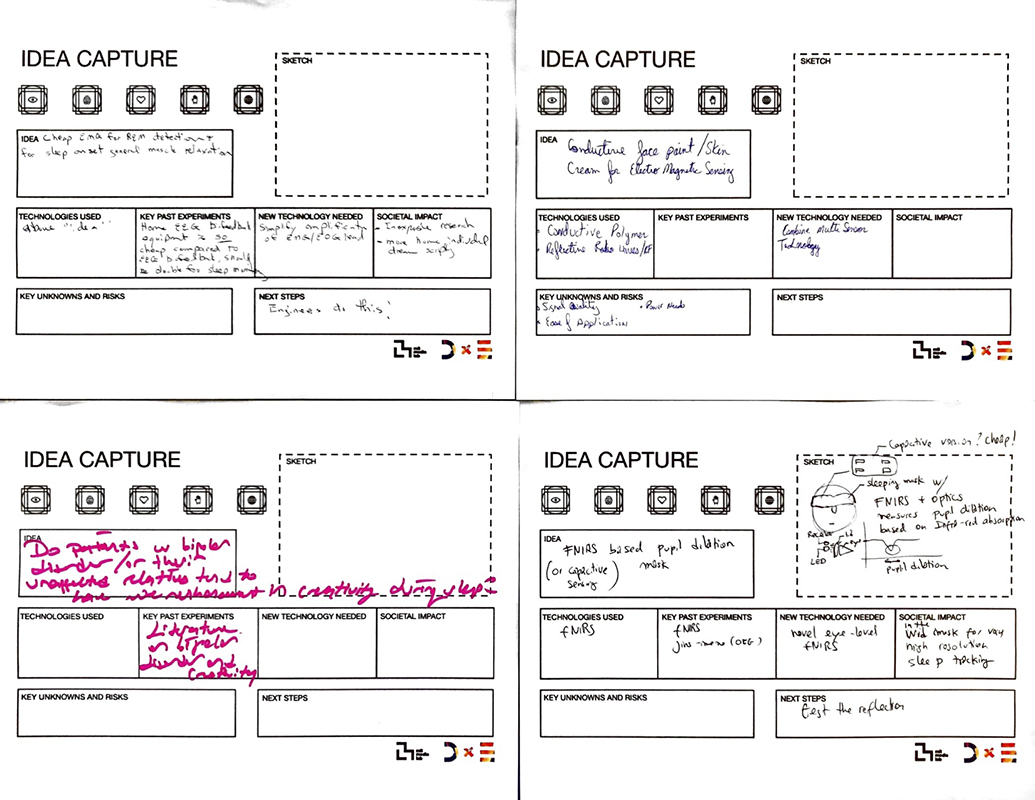 IDEA CAPTURE
SKETCH
IDEA Cheap EMG for REM detection +
for sleep onset general muscle relaxation
TECHNOLOGIES USED
KEY PAST EXPERIMENTS
Home EEG Biofeedback
equipment is so
cheap compared to
EEG biofeedback, should
be doable for sleep
NEW TECHNOLOGY NEEDED
Simplify
of EMG/EOG
SOCIETAL IMPACT
- Inexpensive research
- more home individual
dream
KEY UNKNOWNS AND RISKS
NEXT STEPS
Engineers do this!
IDEA CAPTURE
SKETCH
IDEA
Conductive face paint/Skin
Cream for Electro Magnetic Sensing
TECHNOLOGIES USED
• Conductive Polymer
• Reflective Radio Waves/RF
KEY PAST EXPERIMENTS
NEW TECHNOLOGY NEEDED
Combine Multi Sensor
Technology
SOCIETAL IMPACT
KEY UNKNOWNS AND RISKS
• Signal Quality
• Power Needs
• Ease of Application
NEXT STEPS
IDEA CAPTURE
SKETCH
IDEA
Do patients w bipolar
disorder/or their
unaffected relatives tend to
have in creativity during sleep
TECHNOLOGIES USED
KEY PAST EXPERIMENTS
Literature
on bipolar
disorder and
Creativity
NEW TECHNOLOGY NEEDED
SOCIETAL IMPACT
KEY UNKNOWNS AND RISKS
NEXT STEPS
IDEA CAPTURE
Capacitive version? Cheap!
SKETCH
sleeping mask w/
FNIRS + optics
measures pupil dilation
based on Infra-red absorption
LED
Pupil dilation
IDEA
FNIRS based pupil dilation
(or capacitive
sensing)
mask
TECHNOLOGIES USED
fNIRS
KEY PAST EXPERIMENTS
fNIRS
jins-meme (OEG)
NEW TECHNOLOGY NEEDED
novel eye-level
fNIRS
SOCIETAL IMPACT
in the
Wild mask for very
high resolution
sleep tracking
KEY UNKNOWNS AND RISKS
NEXT STEPS
test the reflection